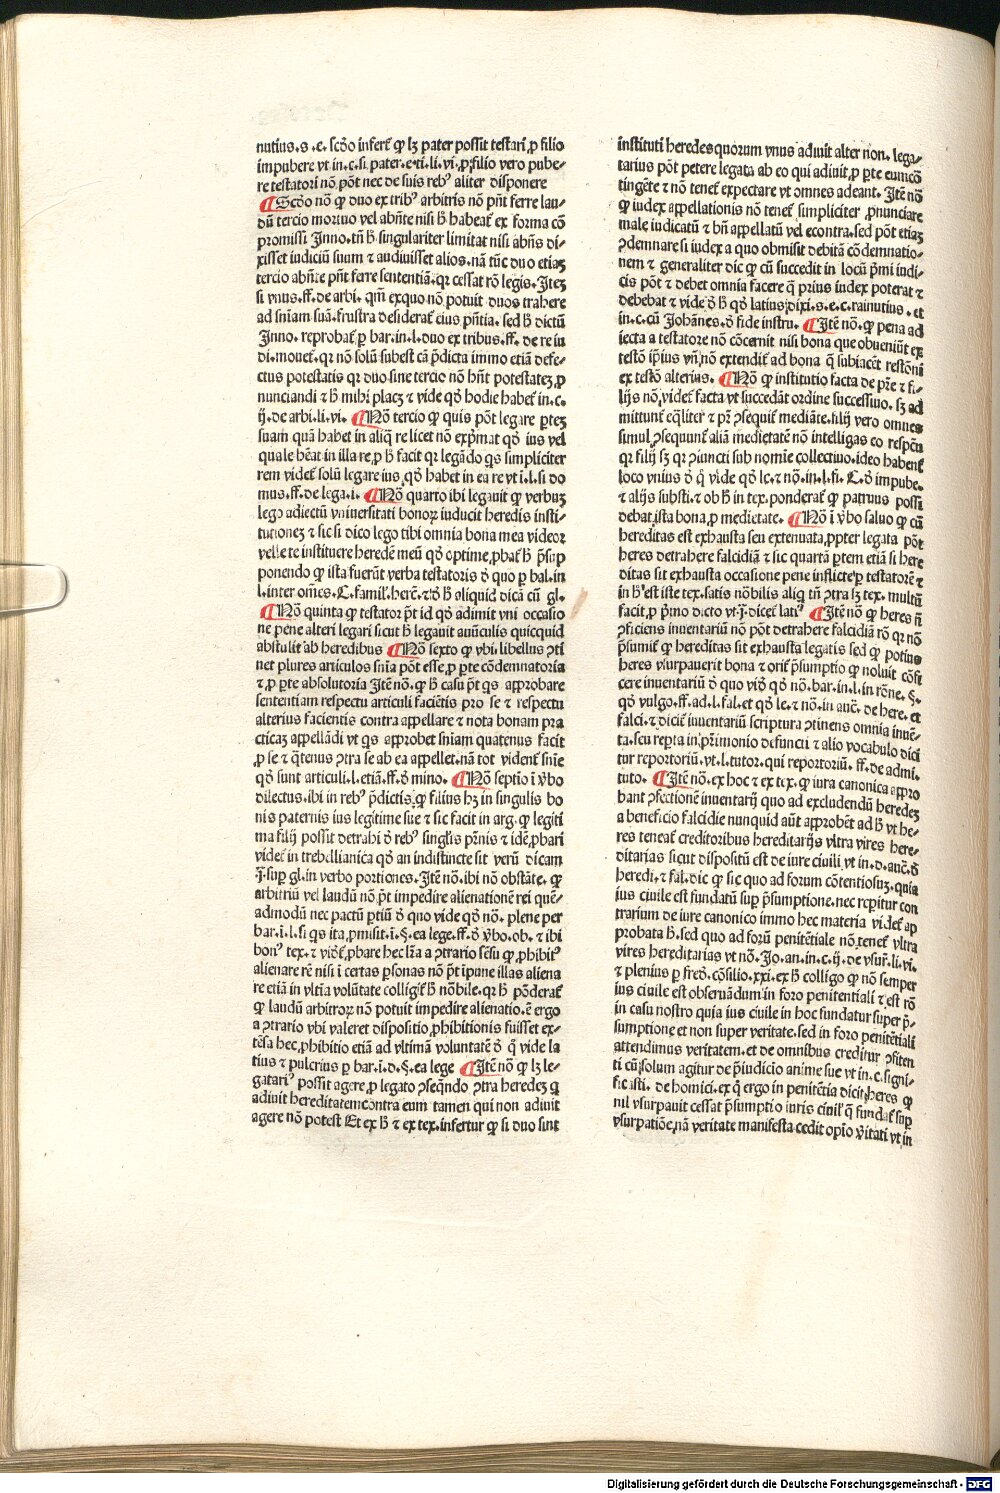 nutius.s.e. scd̄o infert̄ ꝙ lꝫ pater possit testari ꝓ filio
impubere vt in.c.si pater.e.ti.li.vi.ꝓ filio vero pube⸗
re testatori nō pōt nec de suis rebꝰ aliter disponere
¶ Scd̄o nō ꝙ duo ex tribꝰ arbitris nō pn̄t ferre lau⸗
dū tercio mortuo vel abn̄te nisi h̄ habeat̄ ex forma cō
promissi Inno.tn̄ h̄ singulariter limitat nisi abn̄s di⸗
xisset iudiciū suum ⁊ audiuisset alios.nā tūc duo etiaꝫ
tercio abn̄te pn̄t ferre sententiā.qꝛ cessat rō legis.Iteꝫ
si vnus.ff.de arbi. qm̄ exquo nō potuit duos trahere
ad sn̄iam suā.frustra desiderat̄ eius pn̄tia. sed h̄ dictū
Inno. reprobat̄ ꝑ bar.in.l.duo ex tribus.ff. de re iu
di.mouet̄. qꝛ nō solū subest cā p̄dicta immo etiā defe⸗
ctus potestatis qꝛ duo sine tercio nō hn̄t potestateꝫ ꝓ
nunciandi ⁊ h̄ mihi placꝫ ⁊ vide qd̄ bodie habet̄ in.c.
ij.de arbi.li.vi. ¶ Nō tercio ꝙ quis pōt legare pteꝫ
suam quā habet in aliq̄ re licet nō exp̄mat qd̄ ius vel
quale h̄eat in illa re ꝓ h̄ facit qꝛ legādo qs simpliciter
rem videt̄ solū legare ius qd̄ habet in ea re vt ī.l.si do
mus.ff.de lega.i. ¶ Nō quarto ibi legauit ꝙ verbuꝫ
lego adiectū vniuersitati bonoꝝ iuducit heredis insti⸗
tutionez ⁊ sic si dico lego tibi omnia bona mea videor
velle te instituere heredē meū qd̄ optime ꝓbat̄ h̄ p̄sup
ponendo ꝙ ista fuerāt verba testatoris d̄ quo ꝑ bal.in
l.inter om̄es.C.famil.herc̄.⁊ d̄ h̄ aliquid dicā cū gl.
¶ Nō quinta ꝙ testator pt̄ id qd̄ adimit vni occasio
ne pene alteri legari sicut h̄ legauit auūculis quicquid
abstulit ab heredibus ¶ Nō sexto ꝙ vbi libellus ꝯti
net plures articulos sn̄ia pōt esse ꝓ ꝑte cōdemnatoria
⁊ ꝓ ꝑte absolutoria Itē nō. ꝙ h̄ casu pn̄t qs approbare
sententiam respectu articuli faciētis pro se ⁊ respectu
alterius facientis contra appellare ⁊ nota bonam pra
cticaꝫ appellādi vt qs approbet sn̄iam quatenus facit
ꝓ se ⁊ q̄tenus ꝯtra se ab ea appellet.nā tot vident̄ sn̄ie
qd̄ sunt articuli.l.etiā.ff.d̄ mino. ¶ Nō septīo ī v̄bo
dilectus.ibi in rebꝰ p̄dictis ꝙ filius hꝫ in singulis bo
nis paternis ius legitime sue ⁊ sic facit in arg.ꝙ legiti
ma filij possit detrahi d̄ rebꝰ singl̄is pr̄nis ⁊ idē ꝓbari
videt̄ in trebellianica qd̄ an indistincte sit verū dicam
j̄.sup gl.in verbo portiones. Itē nō.ibi nō obstāte. ꝙ
arbitriū vel laudū nō pt̄ impedire alienationē rei quē⸗
admodū nec pactū ptiū d̄ quo vide qd̄ nō. plene per
bar.ī.l.si qs ita ꝓmisit.ī.§.ea lege.ff.d̄ v̄bo.ob. ⁊ ibi
bonꝰ tex.⁊ vid̄t̄ ꝓbare hec lr̄a a ꝯtrario sēsu ꝙ ꝓhibitꝰ
alienare rē nisi ī certas ꝑsonas nō pt̄ īpune illas aliena
re etiā in vltīa volūtate colligit̄ h̄ nōbile.qꝛ h̄ pōderat̄
ꝙ laudū arbitroꝝ nō potuit impedire alienatio.ē ergo
a ꝯtrario vbi valeret dispositio ꝓhibitionis fuisset ex⸗
tēsa hec ꝓhibitio etiā ad vltimā voluntatē d̄ q̄ vide la
tius ⁊ pulcrius ꝑ bar.ī.d.§.ea lege ¶ Itē nō ꝙ lꝫ le⸗
gatariꝰ possit agere ꝓ legato ꝯseqn̄do ꝯtra heredeꝫ q̄
adiuit hereditatem contra eum tamen qui non adiuit
agere nō potest Et ex h̄ ⁊ ex tex.infertur ꝙ si duo sint
instituti heredes quorum vnus adiuit alter non. lega⸗
tarius pōt petere legata ab eo qui adiuit ꝓ ꝑte eum cō
tingēte ⁊ nō tenet̄ expectare vt omnes adeant. Itē nō
ꝙ iudex appellationis nō tenet̄ simpliciter ꝓnunciare
male iudicatū ⁊ bn̄ appellatū vel econtra.sed pōt etiaꝫ
ꝯdemnare si iudex a quo obmisit debitā cōdemnatio⸗
nem ⁊ generaliter dic ꝙ cū succedit in locū p̄mi iudi⸗
cis pōt ⁊ debet omnia facere q̄ prius index poterat ⁊
debebat ⁊ vide d̄ h̄ qd̄ latius dixi.s.e.c.rainutius.et
in.c.cū Johānes.d̄ fide instru. ¶ Itē nō.ꝙ pena ad
iecta a testatore nō cōcernit nisi bona que obueniūt ex
testō ip̄ius vn̄ nō extendit̄ ad bona q̄ subiacēt restōni
ex testō alterius. ¶ Nō ꝙ institutio facta de pr̄e ⁊ fi⸗
lijs nō videt̄ facta vt succedāt ordine successiuo. sꝫ ad
mittunt̄ eq̄liter ⁊ pr̄ ꝯsequit̄ mediātē.filij vero omnes
simul ꝯsequunt̄ aliā medietatē nō intelligas eo respctu
qꝛ filij sꝫ qꝛ ꝯiuncti sub nomīe collectiuo.ideo habent̄
loco vnius d̄ q̄ vide qd̄ le.⁊ nō.in.l.fi.C.d̄ impube.
⁊ alijs substi.⁊ ob h̄ in tex.ponderat̄ ꝙ patruus possi
debat ista bona ꝓ medietate. ¶ Nō ī v̄bo saluo ꝙ cū
hereditas est exhausta seu extenuata ꝓpter legata pōt
heres detrahere falcidiā ⁊ sic quartā ꝑtem etiā si here
ditas sit exhausta occasione pene inflicte ꝑ testatorē ⁊
in h̄ est iste tex.satis nōbilis aliq̄ tn̄ ꝯtra lꝫ tex. multū
facit ꝓ p̄mo dicto vt j̄.dicet̄ latiꝰ ¶ Itē nō ꝙ heres n̄
ꝯficiens inuentariū nō pōt detrahere falcidiā rō qꝛ nō
p̄sumit̄ ꝙ hereditas sit exhausta legatis sed ꝙ potius
heres vsurpauerit bona ⁊ orit̄ p̄sumptio ꝙ noluit cōfi
cere inuentariū d̄ quo vid̄ qd̄ nō.bar.in.l.in rōne.§.
qd̄ vulgo.ff.ad.l.fal.et qd̄ le.⁊ nō.in auc̄.de here.et
falci.⁊ dicit̄ inuentariū scriptura ꝯtinens omnia inuē⸗
ta.seu reꝑta in pr̄imonio defuncti ⁊ alio vocabulo dici
tur reportoriū.vt.l.tutor.qui reportoriū.ff.de admi.
tuto. ¶ Itē nō.ex hoc ⁊ ex tex.ꝙ iura canonica appro
bant ꝯfectionē inuentarij quo ad excludendū heredeꝫ
a beneficio falcidie nunquid aūt approbēt ad h̄ vt he⸗
res teneat̄ creditoribus hereditarijs vltra vires here⸗
ditarias sicut dispositū est de iure ciuili vt in.d.auc̄.d̄
heredi.⁊ fal.dic ꝙ sic quo ad forum cōtentiosuꝫ.quia
ius ciuile est fundatū sup p̄sumptione.nec reꝑitur con
trarium de iure canonico immo hec materia videt̄ ap
probata h̄.sed quo ad forū penitētiale nō tenet̄ vltra
vires hereditarias vt nō.Jo.an.in.c.ij.de vsur̄.li.vi.
⁊ plenius ꝑ fred̄.cōsilio.xxi.ex h̄ colligo ꝙ nō semper
ius ciuile est obseruādum in foro penitentiali ⁊ est rō
in casu nostro quia ius ciuile in hoc fundatur super p̄⸗
sumptione et non super veritate.sed in foro penitētiali
attendimus veritatem.et de omnibus creditur ꝯfiten
ti cū solum agitur de p̄iudicio anime sue vt in.c.signi⸗
ficasti.de homici.ex q̄ ergo in penitētia dicit heres ꝙ
nil vsurpauit cessat p̄sumptio iuris ciuil̄ q̄ fundat̄ sup
vsurpatiōe.nā veritate manifesta cedit opīo v̄itati vt in
Digitalisierung gefördert durch die Deutsche Forschungsgemeinschaft - DFG